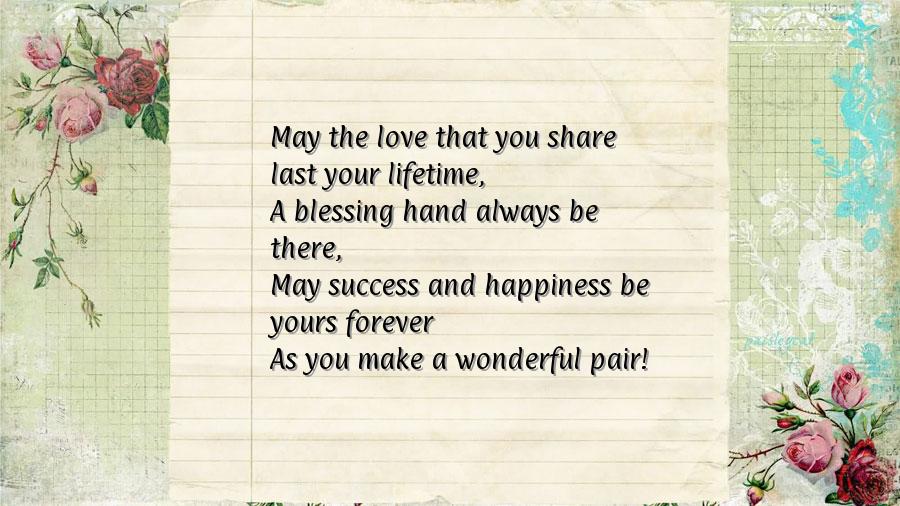 May the love that you share
last your lifetime,
A blessing hand always be
there,
May success and happiness be
yours forever
As you make a wonderful pair!
paisleycat